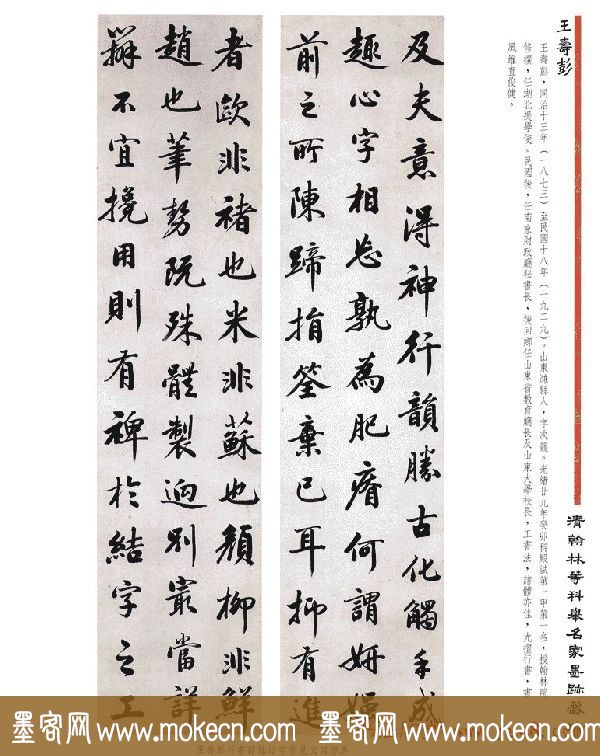 王壽彭
王壽彭，同治十三年（一八七三）至民國十八年（一九二九）。山東濰縣人，字次篯。光緒廿九年癸卯科殿試第一甲第一名，授翰林院
修撰，任湖北提學使、民國後，任南京財政廳秘書長，後回鄉任山東省教育廳長及山東大學校長，工書法，諸體亦佳，尤擅行書，書
風雄直俊健。
清翰林等科舉名家墨跡
及夫意得神行韻勝古化觸手成
趣心字相忘孰為肥瘠何謂妍媸
前之所陳蹄指筌棄已耳抑有進
者歐非褚也米非蘇也顏柳非鮮
趙也筆勢既殊體製迥別審當詳
辨不宜攙用則有裨於結字之工
墨客网 www.mokecn.com 墨客网 www.mokecn.com 墨客网
www.mokecn.com 墨客网 www.mokecn.com 墨客网 www.mokecn.com